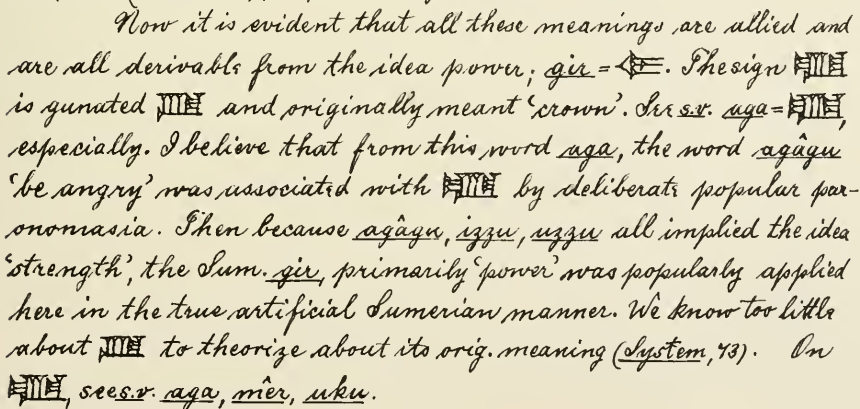 Now it is evident that all these meanings are allied and
are all derivable from the idea power; gir = . The sign
is gunated and originally meant 'crown'. See s.v. aga = ,
especially. I believe that from this word aga, the word agâgu
'be angry' was associated with by deliberate popular par-
onomasia. Then because agâgu, izzu, uzzu all implied the idea
'strength', the Sum. gir, primarily 'power' was popularly applied
here in the true artificial Sumerian manner. We know too little
about to theorize about its orig. meaning (System, 73). On
, see s.v. aga, mêr, uku.